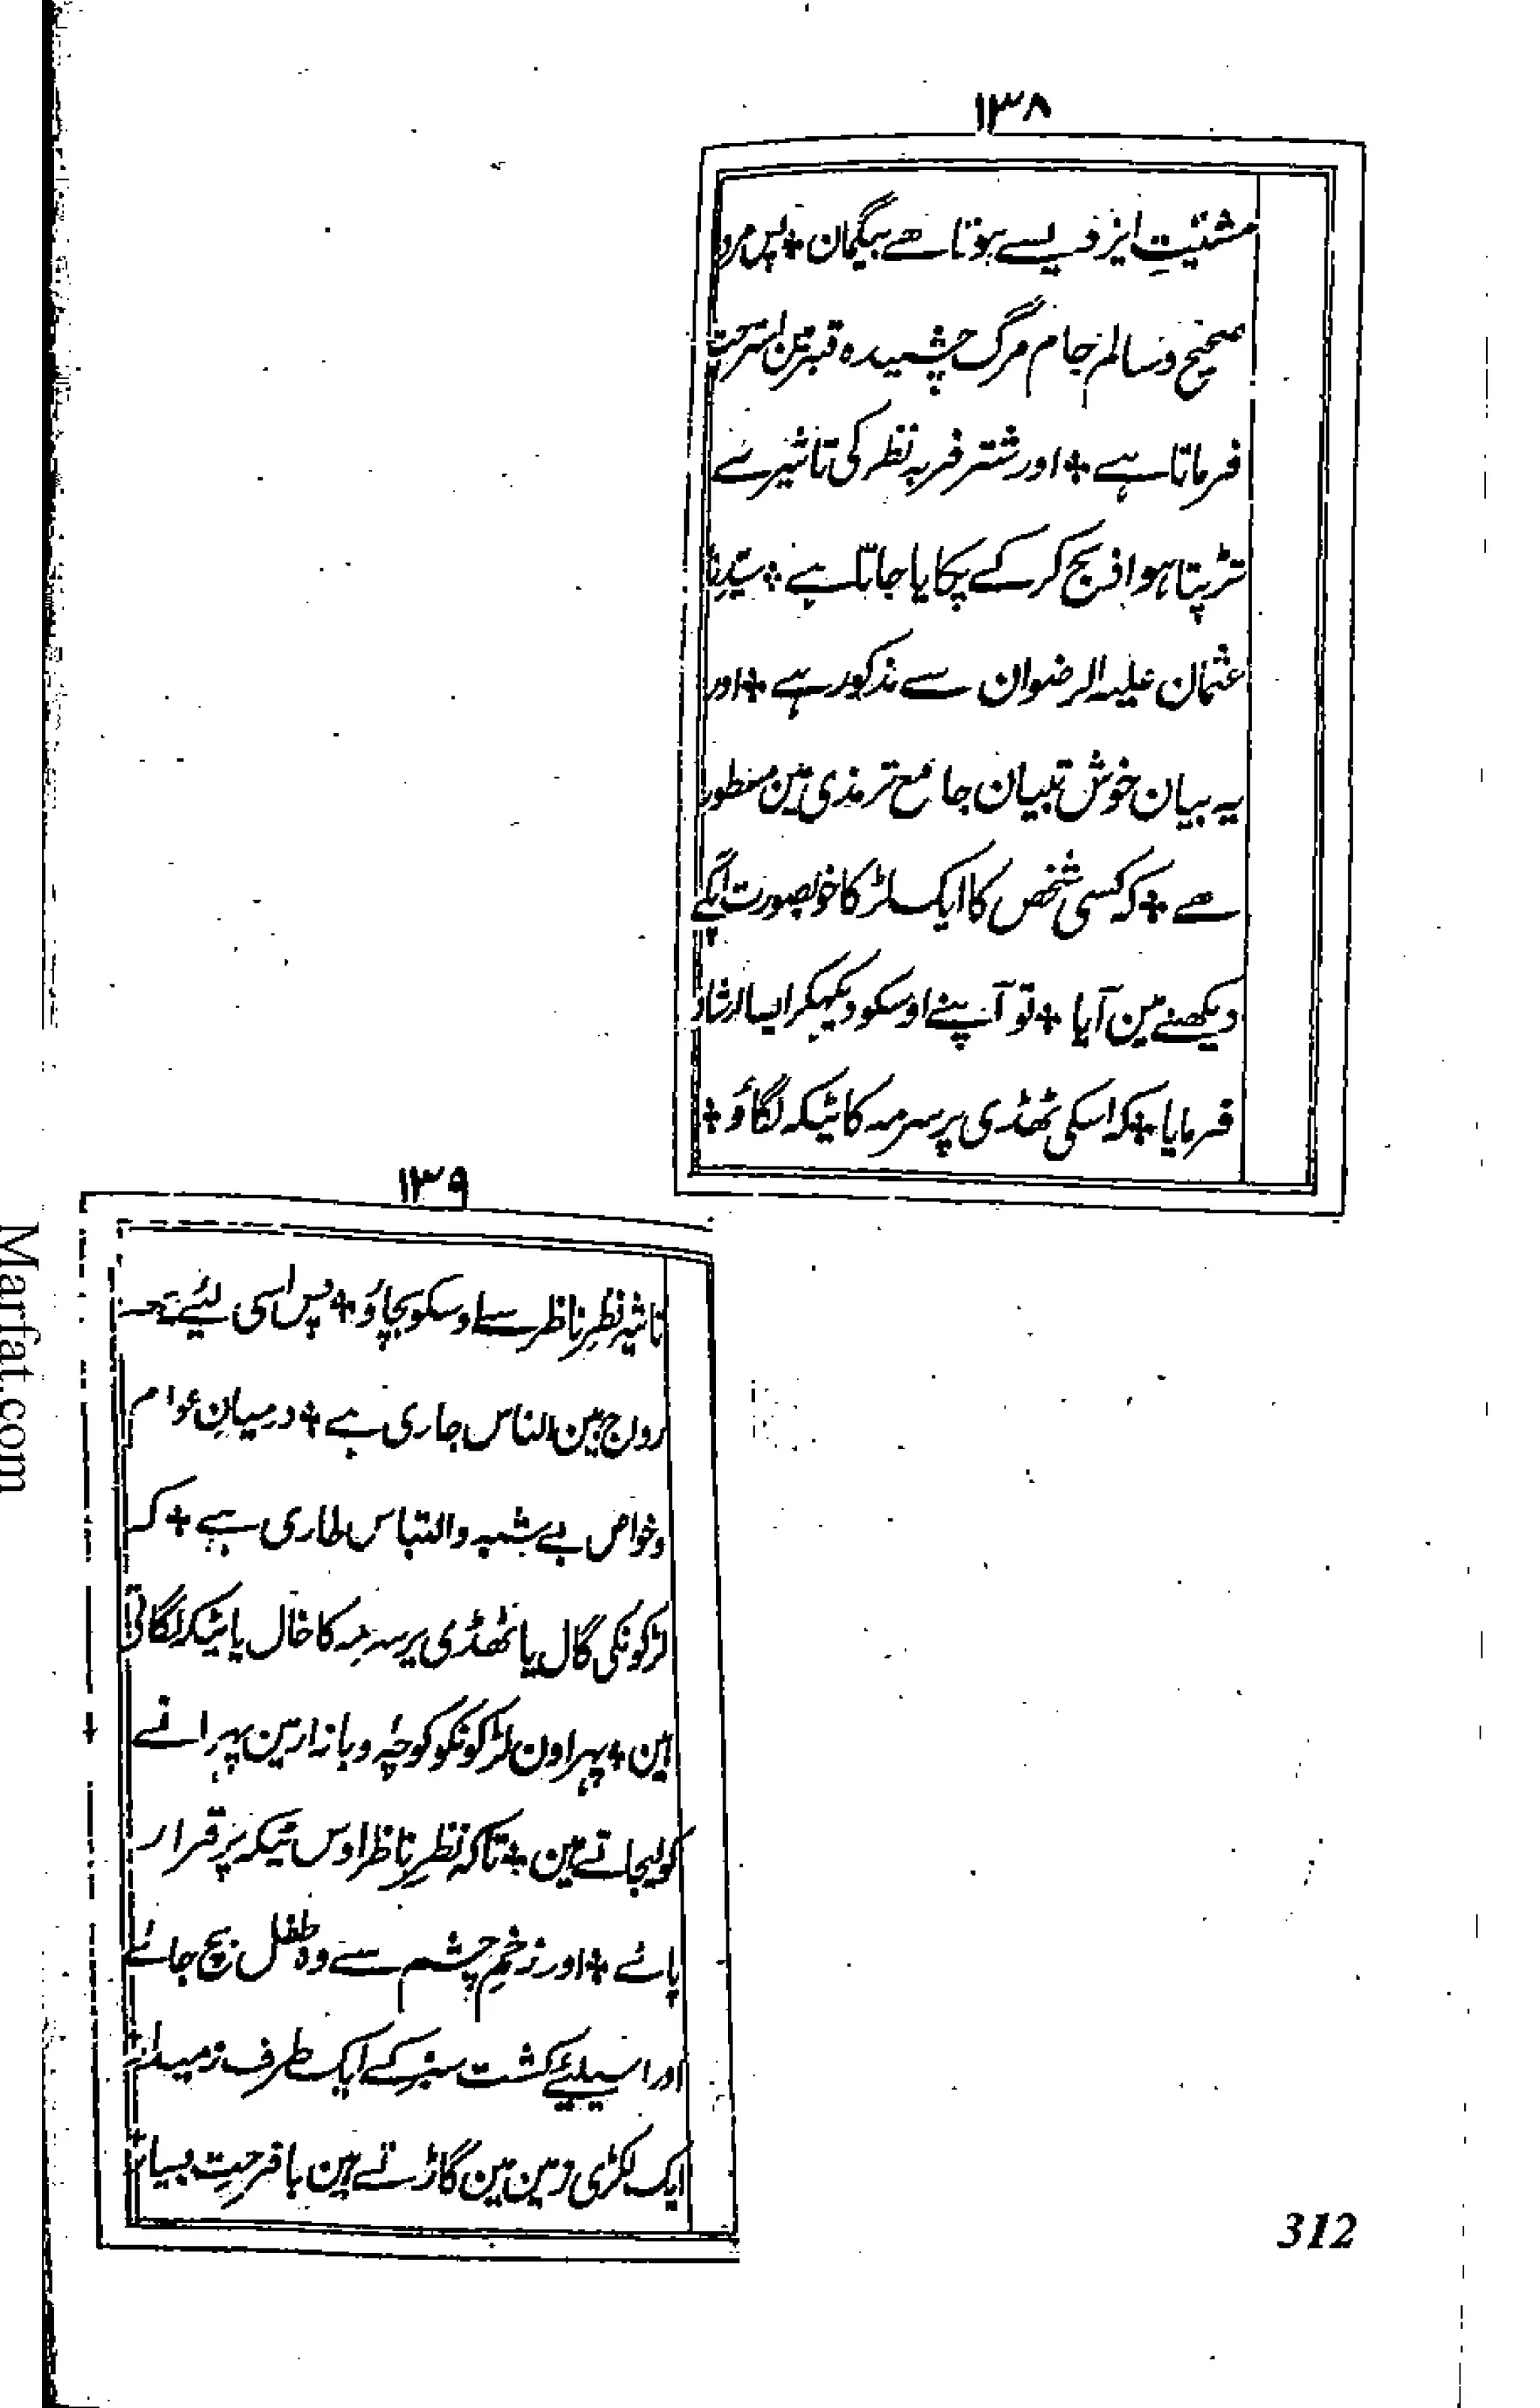 ۱۳۸
مشیّتِ ایزدیسے ہوتا ہے بیگمان + پس مرد
صحیح وسالم جام مرگ چشیدہ قبرمین استراحت
فرماتا ہے + اور شتر فربہ نظر کی تاثیر سے
تڑپتا ہوا ذبح کر کے پکایا جاتا ہے + سیّدنا
عثمان علیہ الرضوان سے مذکور ہے + اور
یہ بیان خوش تبیان جامع ترمذی مین مسطور
ہے + کہ کسی شخص کا ایک لڑکا خوبصورت آپکے
دیکھنے مین آیا + تو آپنے اوسکو دیکھکر ایسا ارشاد
فرمایا + کہ اسکی ٹھڈی پر سرمہ کا ٹیکہ لگاؤ +
۱۳۹
تاثیرِ نظرِ ناظر سے اوسکو بچاؤ + پس اسی لیئے یہ
رواج بین الناس جاری ہے + درمیانِ عوام
وخواص بے شبہ والتباس طاری ہے + کہ
لڑکونکی گال یا ٹھڈی پر سرمہ کا خال یا ٹیکہ لگاتی
ہین + پہر اون لڑکونکو کوچہٴ وبازارمین پہرانے
کو لیجاتے ہین + تاکہ نظرِ ناظر اوس ٹیکہ پر قرار
پائے + اور زخمِ چشم سے وہ طفل بچ جائے
اور اسیلیئے کشت سبز کے ایک طرف زمیندار
ایک لکڑی زمین مین گاڑتے ہین بافرحتِ بسیار
312
Marfat.com